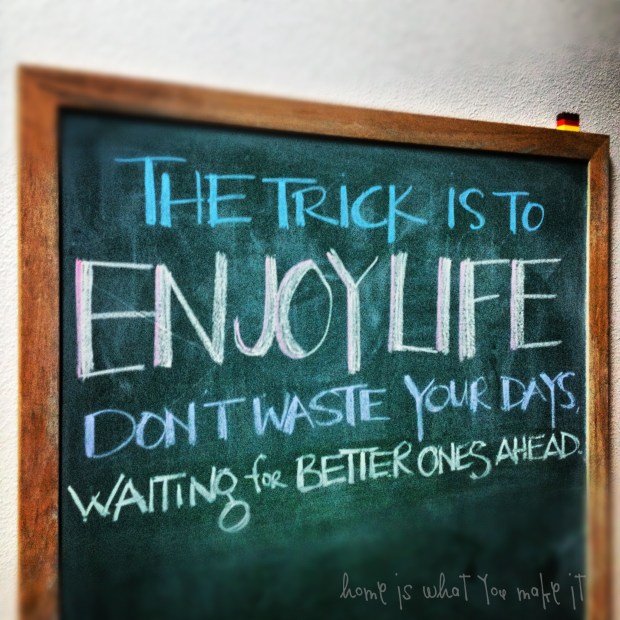 THE TRICK IS TO
ENJOY LIFE
DON'T WASTE YOUR DAYS,
WAITING for BETTER ONES AHEAD.
home is what You make it